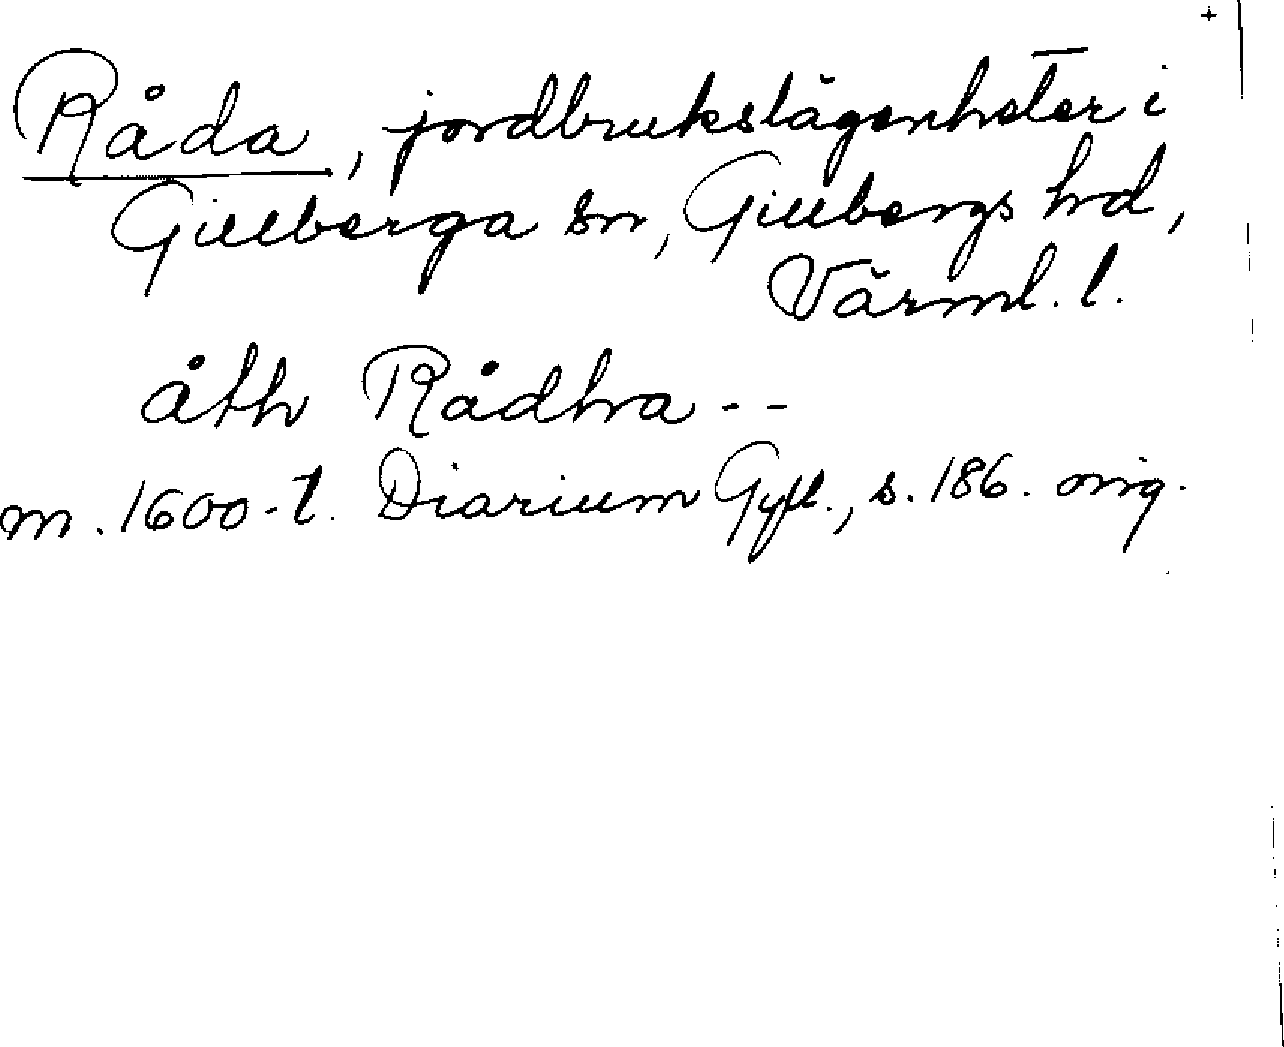 +
Råda, jordbrukslägenheter i
Gillberga sn, Gillbergs hd,
Värml. l.
åth Rådha --
m. 1600-t. Diarium Gyll., s. 186. orig.